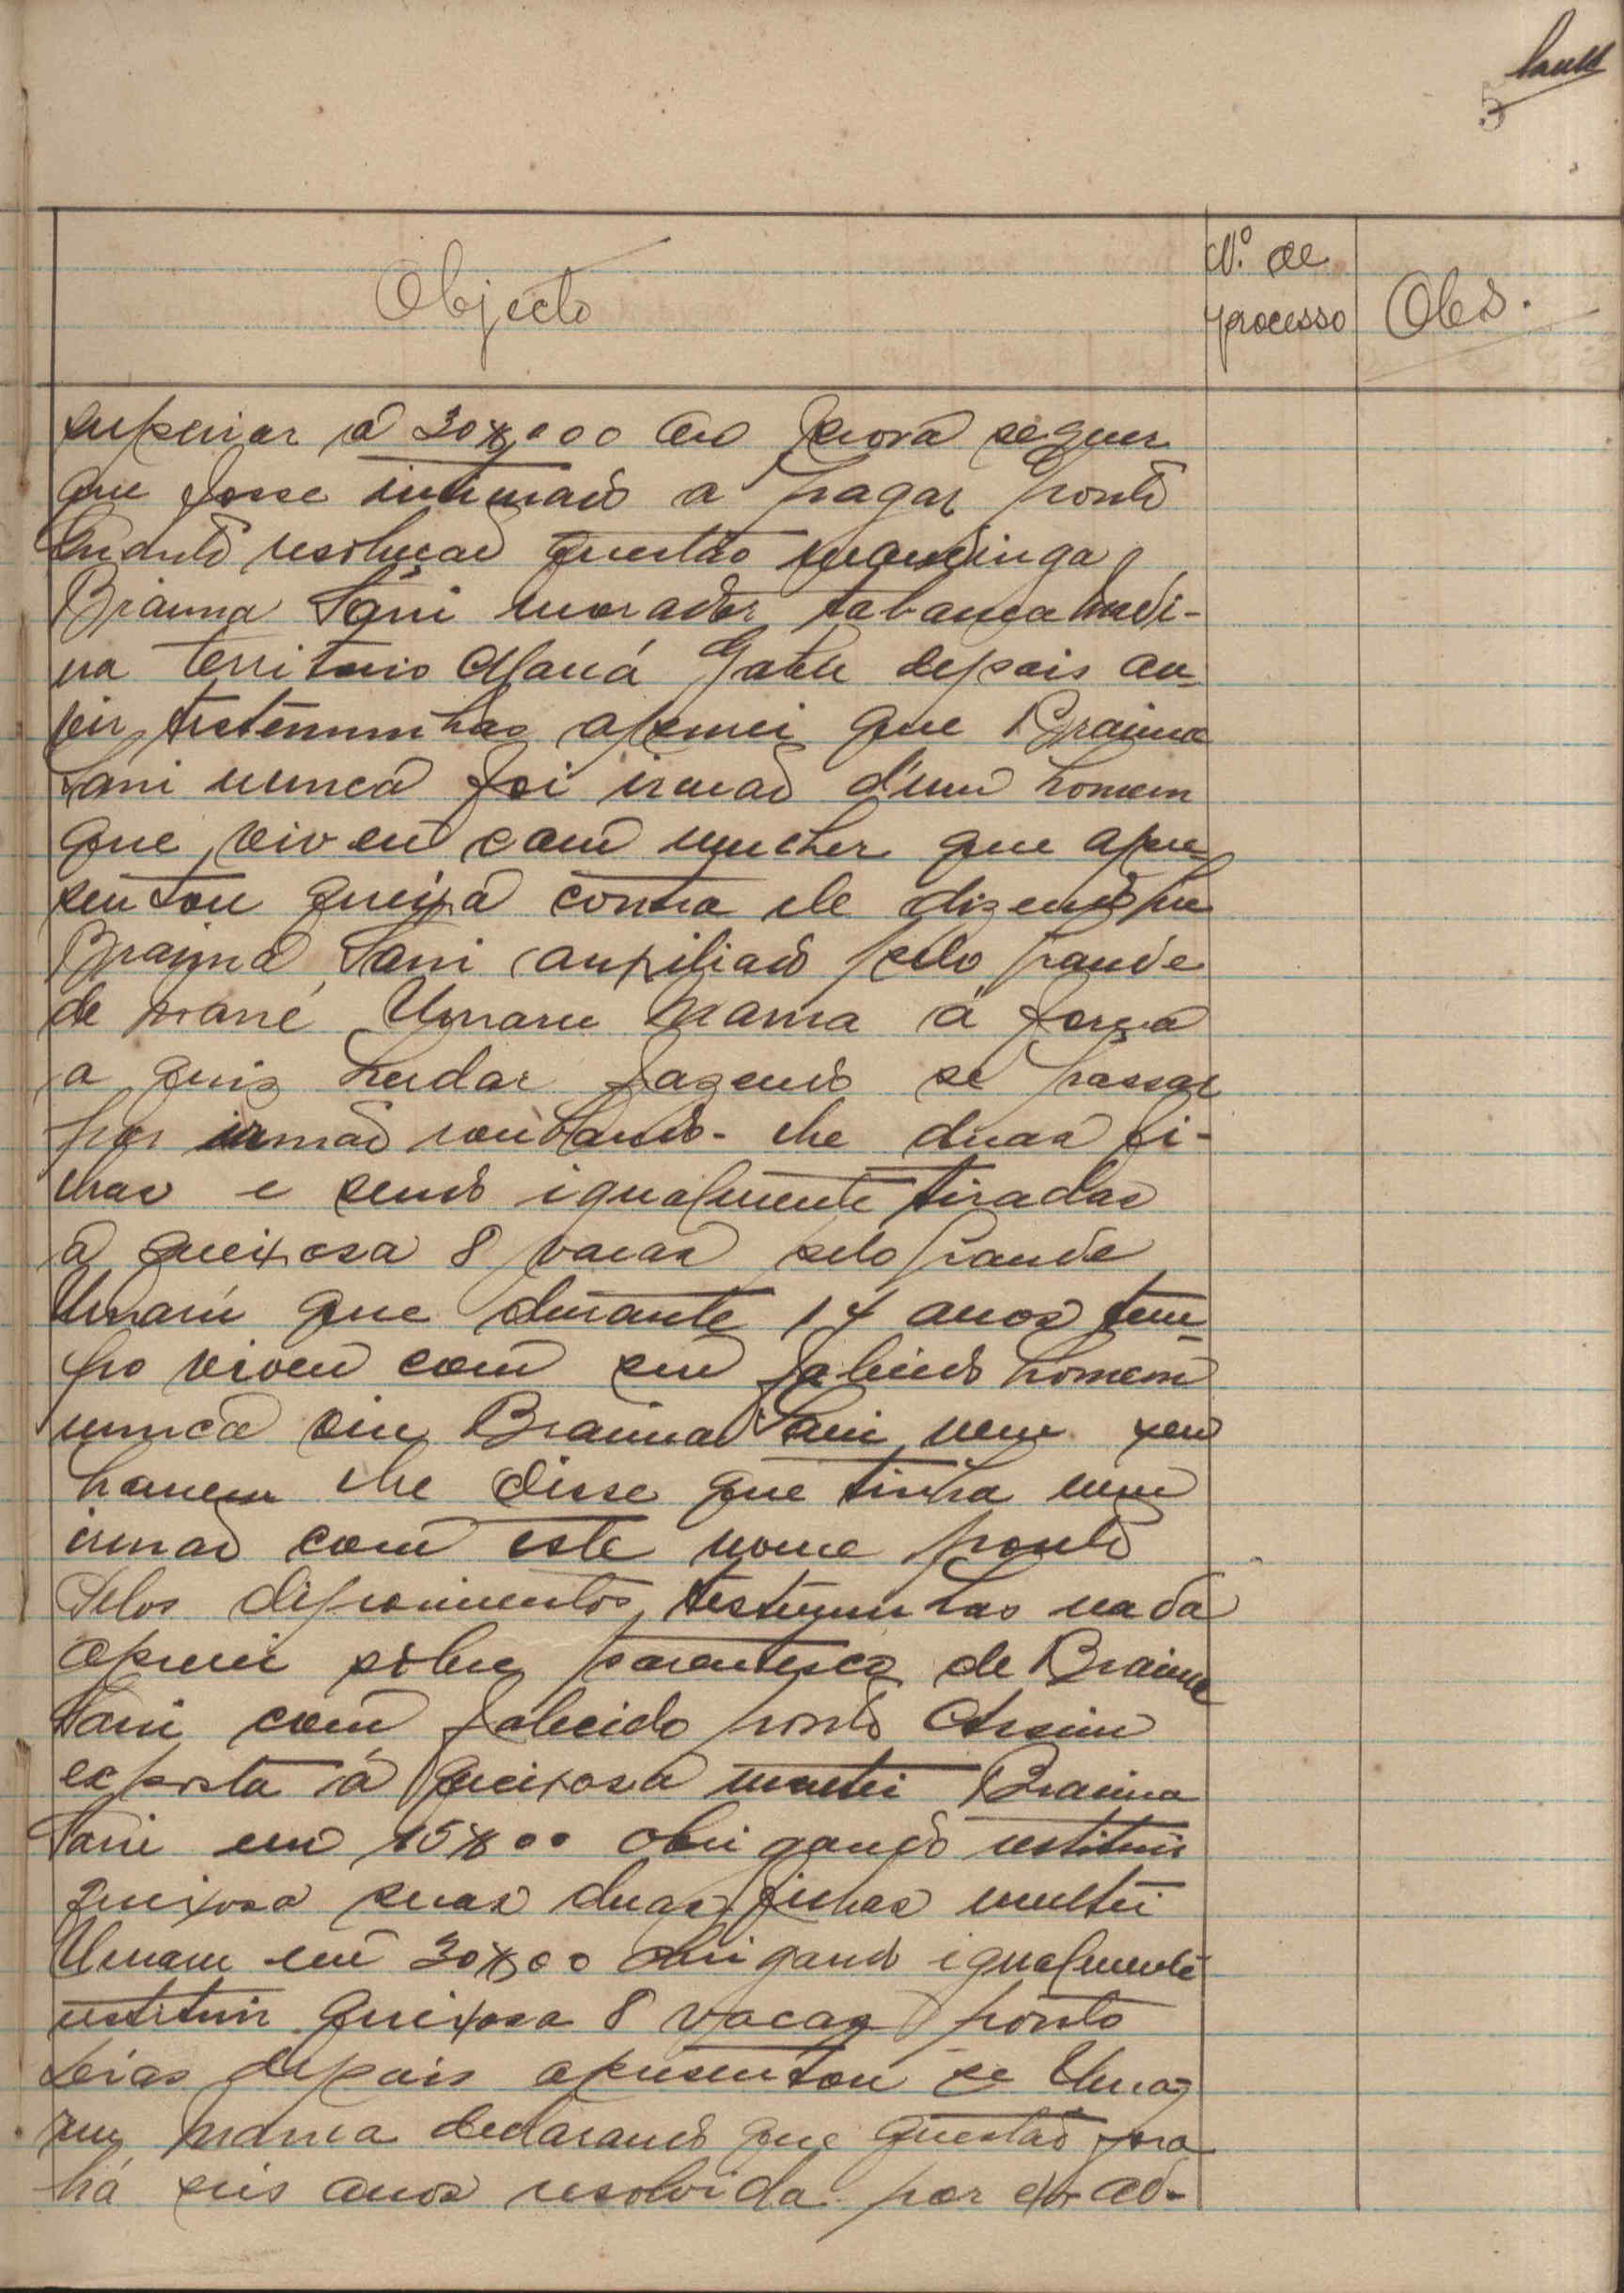 5
Objecto
N.º de
processo
Obs.
superior a 30$000 prova sequer
que fosse intimado a pagar ponto
resolução questão mandinga
Braima Sani morador tabanca Medi-
na territorio Maná Gabu depois ou-
vir testemunhas apurei que Braima
Sani nunca foi irmão d'um homem
que viveu com mulher que apre-
sentou queixa contra ele dizendo que
Braima Sani auxiliado pelo grande
de Umaru Mama á força
a quiz herdar fazendo se passar
por irmão roubando-lhe duas fi-
lhas e sendo igualmente tiradas
á queixosa 8 vacas pelo grande
Umarú que durante 14 anos tem-
po viveu com seu falecido homem
nunca viu Braima Sani nem seu
homem lhe disse que tinha um
irmão com este nome ponto
Pelos depoimentos testemunhas nada
apurei sobre parentesco de Braima
Sani com falecido ponto Assim
exposta a queixosa multei Braima
Sani em 15$00 obrigando restituir
queixosa suas duas filhas multei
Umaru em 30$00 obrigando igualmente
restituir queixosa 8 vacas ponto
Dias depois apresentou se Uma-
ru Mama declarando que questão fora
há seis anos resolvida por ex- ad-